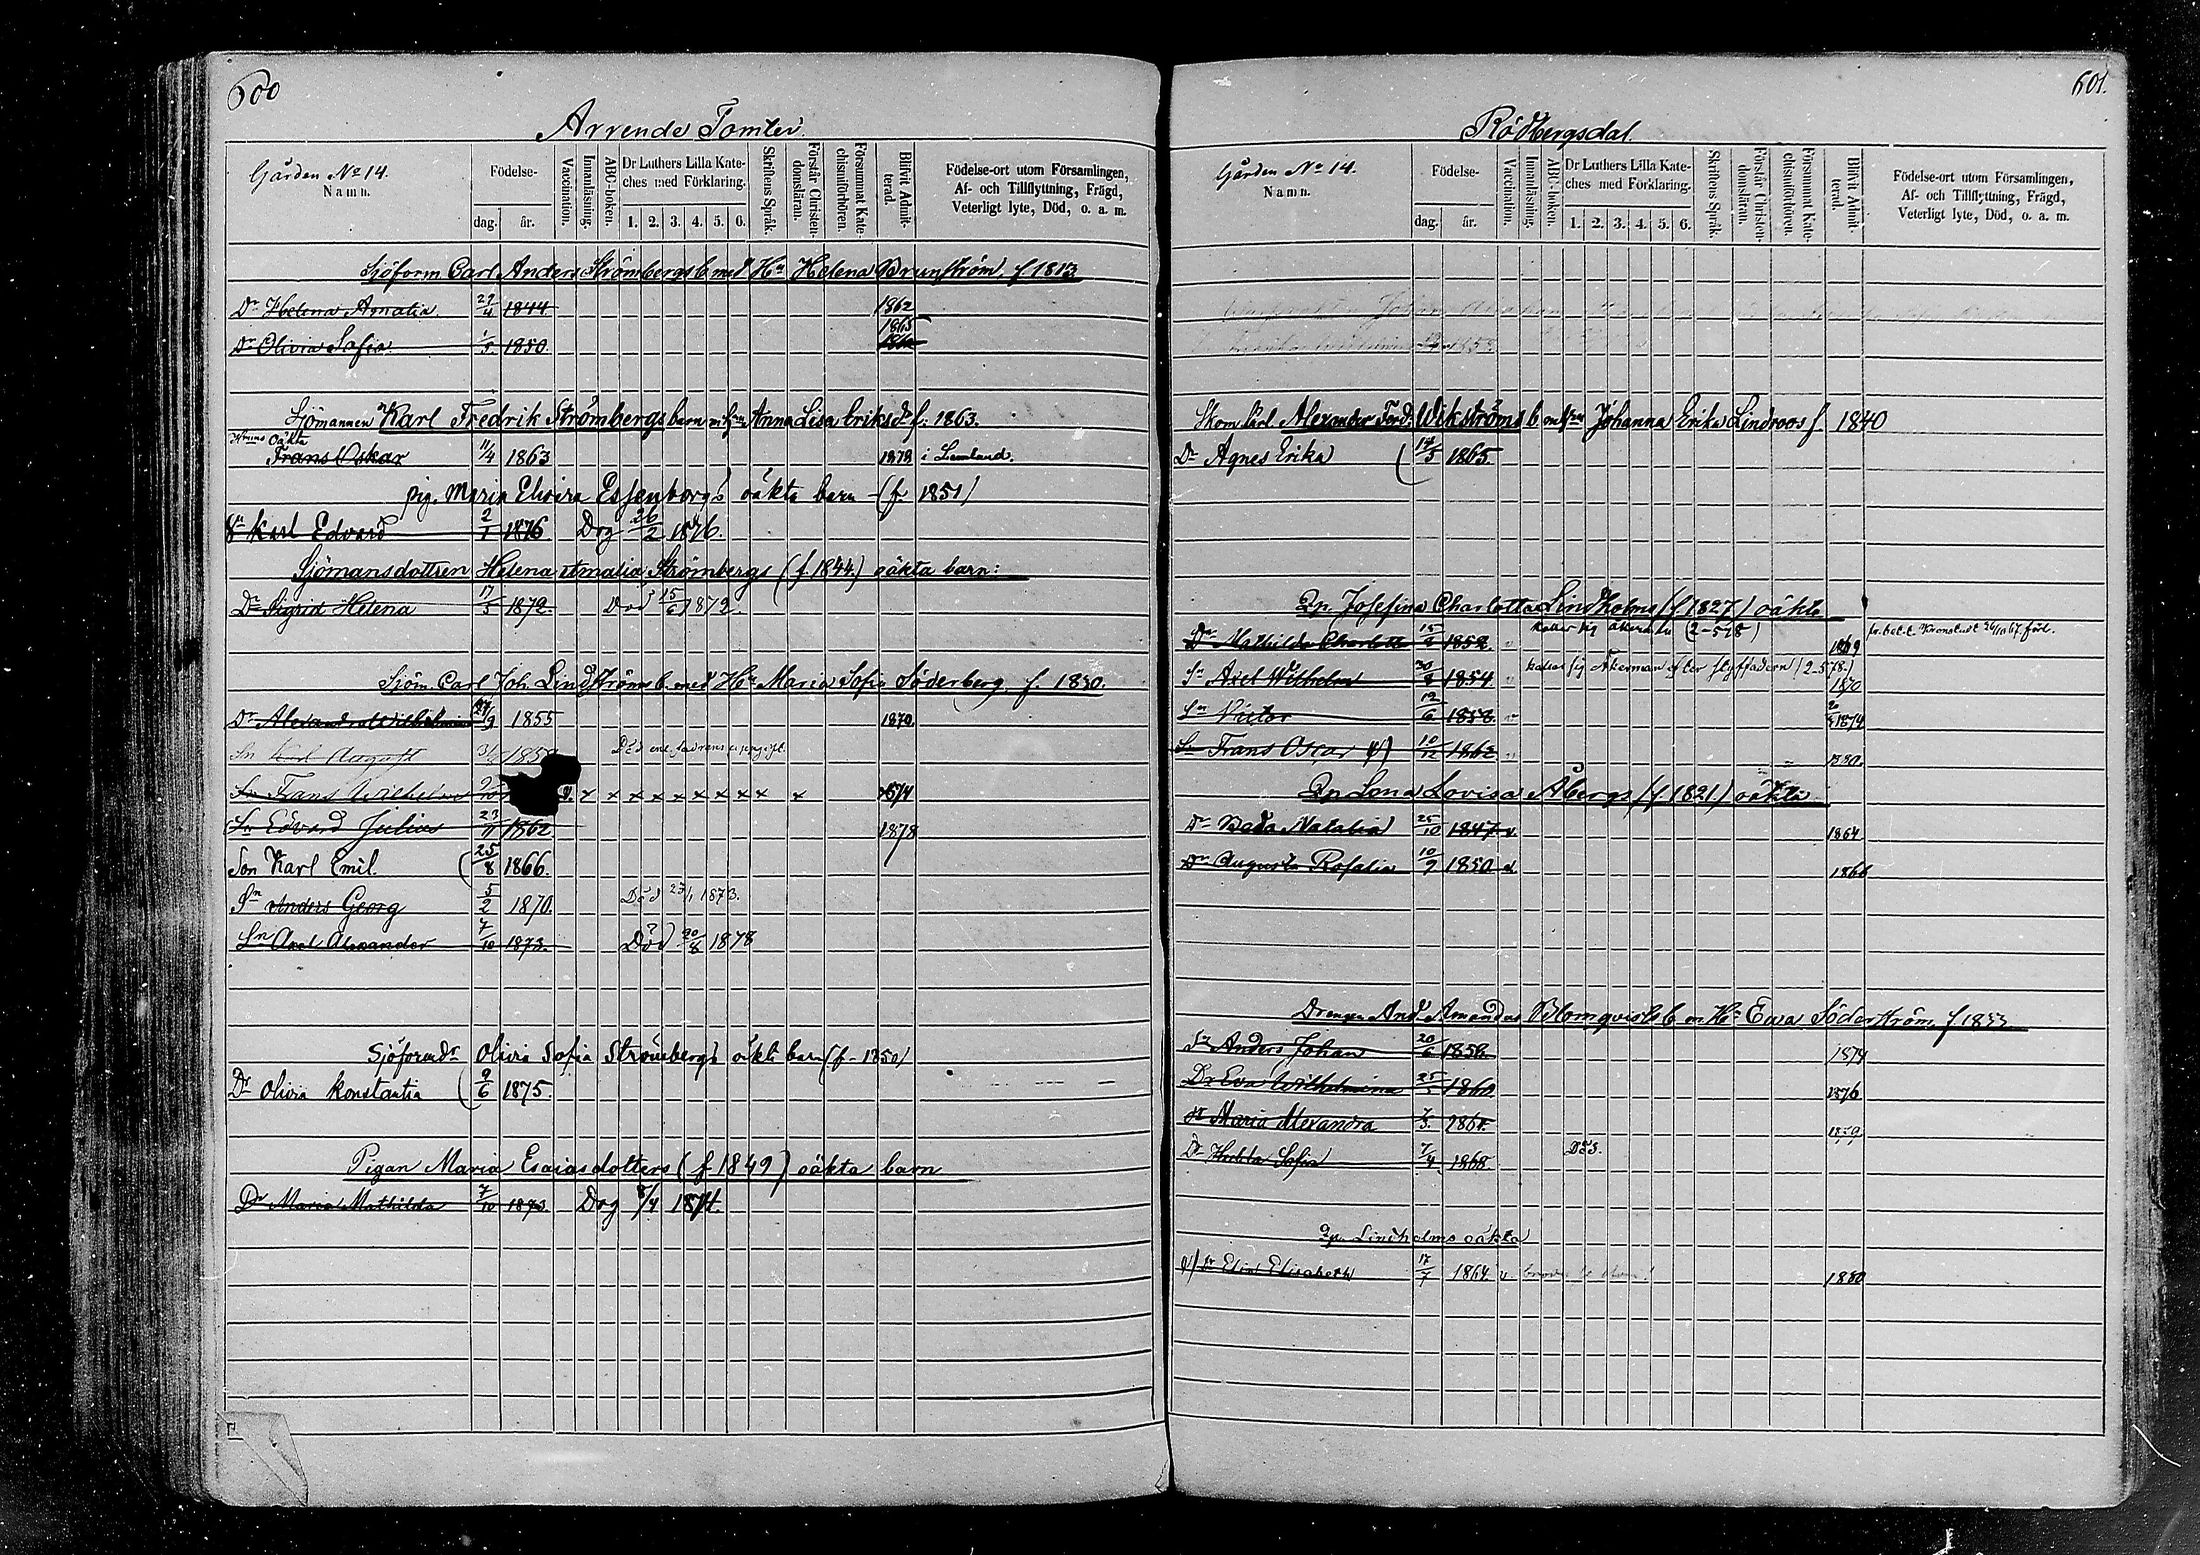 600
Arrende Tomter.
Gården No 14.
Namn.
Födelse-
dag.
år.
Vaccination.
Innanläsning.
ABC-boken.
Dr Luthers Lilla Kate-
ches med Förklaring.
1. 2. 3. 4. 5. 6.
Skriftens Språk.
Förstår Christen-
domsläran.
Försummat Kate-
chismiförhören.
Blifvit Admit-
terad.
Födelse-ort utom Församlingen,
Af- och Tillflyttning, Frägd,
Veterligt lyte, Död, o. a. m.
Sjöform Carl Anders Strömbergs b. med Hu Helena Brunström f 1813
Dr Helena Amalia 29/4 1844 1862
Dr Olivia Sofia 1/5 1850. 1865
Sjömannen Karl Fredrik Strömbergs barn m. hu Anna Lisa Eriksdr f: 1863.
oäkta
Frans Oskar 11/4 1863 1878 i Lemland.
pig. Maria Elvira Essenborgs oäkta barn (f. 1851)
Sn Karl Edvard 2/1 1876 Dog 26/2 1876.
Sjömansdottren Helena Amalia Strömbergs (f. 1844) oäkta barn:
Dr Sigrid Helena 17/5 1872. Död 15/6 1872.
Sjöm. Carl Joh. Lindströms b. med Hu Maria Sofia Söderberg, f. 1830.
Dr Alexandra Wilhelmina 1855 1870.
Sn Karl August 31/ 185 Död enl. fadrens uppgift.
Sn Frans Wilhelm v. x x x x x x x x x x 1874
Sn Edvard Julius 23/11 1862 1878
Son Karl Emil. (25/8 1866.
Sn Anders Georg 5/2 1870. Död 23/1 1873.
Sn Axel Alexander 7/10 1873. Död 20/8 1878
Sjöforadr Olivia Sofia Strömbergs oäkta barn (f. 1850)
Dr Olivia Konstantia (9/6 1875.
Pigan Maria Esaiasdotters (f. 1849) oäkta barn
Dr Maria Mathilda 7/10 1873. Dog 8/4 1874.
601.
Rödbergsdal.
Gården No 14.
Namn.
Födelse-
dag.
år.
Vaccination.
Innanläsning.
ABC-boken.
Dr Luthers Lilla Kate-
ches med Förklaring.
1. 2. 3. 4. 5. 6.
Skriftens Språk.
Förstår Christen-
domsläran.
Försummat Kate-
chismiförhören.
Blifvit Admit-
terad.
Födelse-ort utom Församlingen,
Af- och Tillflyttning, Frägd,
Veterligt lyte, Död, o. a. m.
Skom. lärl. Alexander Ferd. Wikströms b. m hu Johanna Erika Lindroos f. 1840
Dr Agnes Erika (14/5 1865.
Qp. Josefina Charlotta Lindholms (f 1827) oäkta
kallar sig Åkerman (2-578)
Dr Mathilda Charlotta 15/9 1852. v 1869
Sn Axel Wilhelm 30/8 1854 v kallar sig Åkerman efter styffadern (2-578.) 1870
Sn Victor 12/6 1858. v 1874
Sn Frans Oscar 10/12 1862 v 1880.
Qp Lena Lovisa Åbergs (f 1821) oäkta
Dr Beda Natalia 25/10 1847 v. 1864
Dr Augusta Rosalia 10/9 1850 v 1866
Drengen And. Amandus Blomqvists b m Hu Eva Söderström, f 1833
Sn Anders Johan 20/6 1858. 1874
Dr Eva Wilhelmina 25/5 1860 1876
Dr Maria Alexandra 7/3. 186
Dr Hulda Sofia 7/4 1868. Död.
Qp. Lindholms oäkta
Dr Elin Elisabeth 17/7 1864 v. 1880